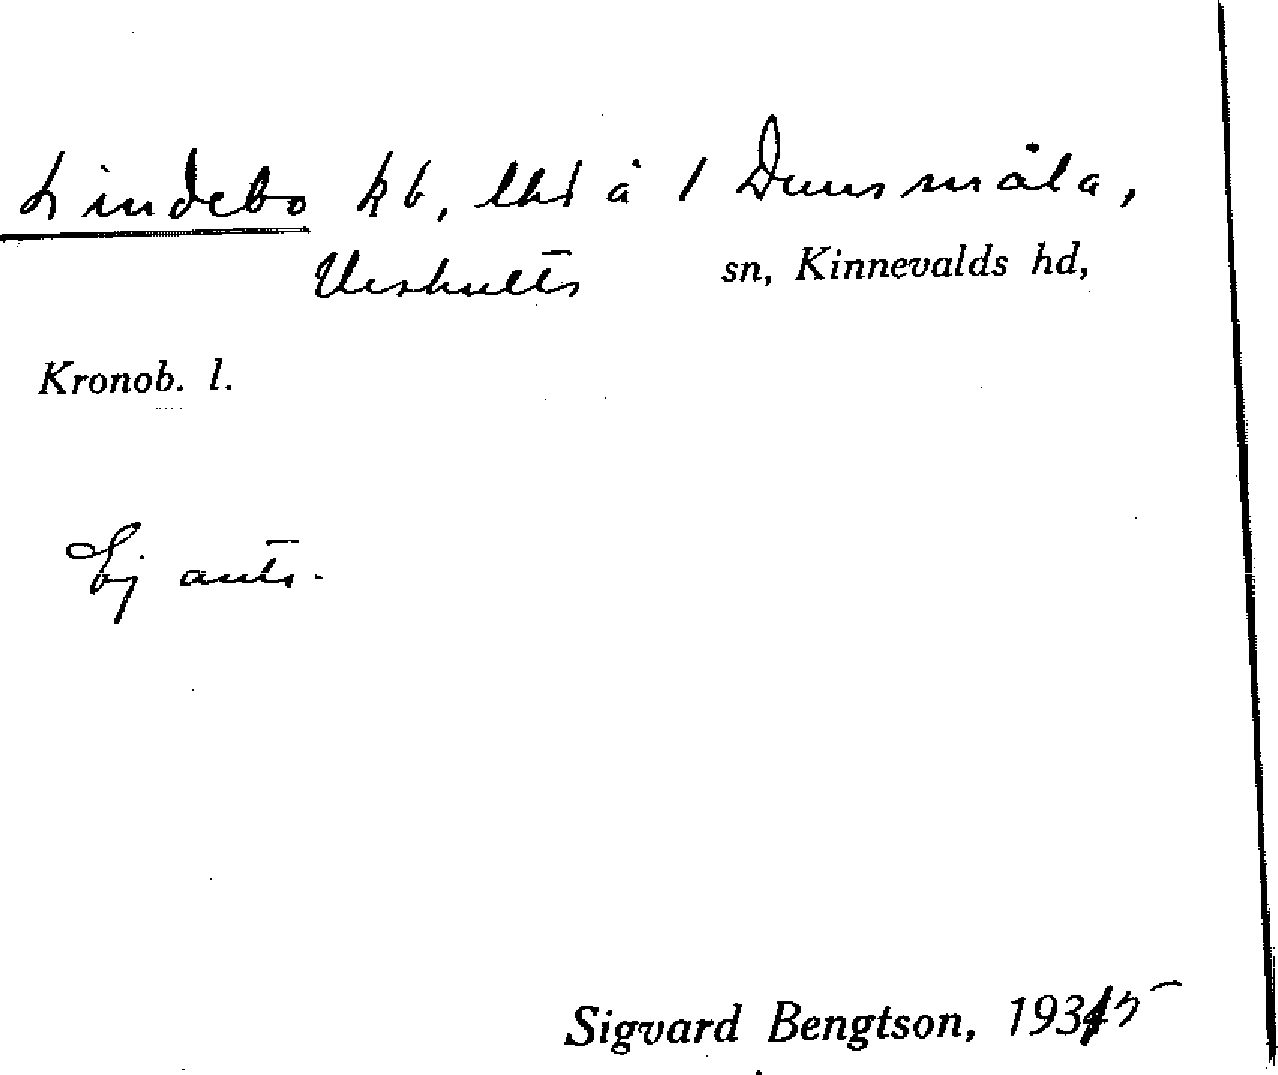 Lindebo kb, lht å 1 Dunsmåla,
Virshults sn, Kinnevalds hd,
Kronob. l.
Ej ants.
Sigvard Bengtson, 1935